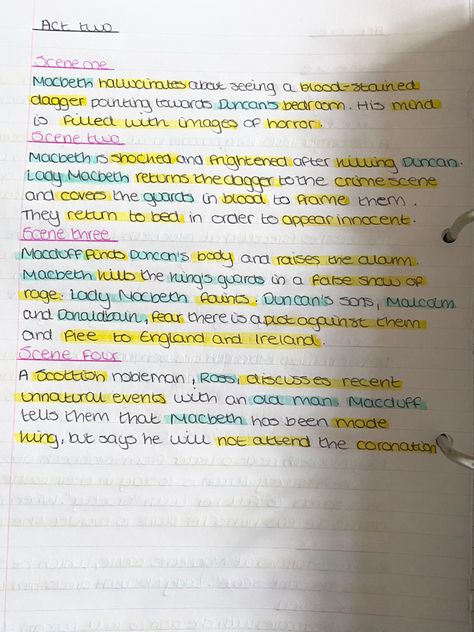 Act two
Scene one
Macbeth hallucinates about seeing a blood-stained
dagger pointing towards Duncan's bedroom. His mind
is filled with images of horror.
Scene two
Macbeth is shocked and frightened after killing Duncan.
Lady Macbeth returns the dagger to the crime scene
and covers the guards in blood to frame them.
They return to bed in order to appear innocent.
Scene three
Macduff finds Duncan's body and raises the alarm.
Macbeth kills the king's guards in a false show of
rage. Lady Macbeth faints. Duncan's sons, Malcolm
and Donaldbain, fear there is a plot against them
and flee to England and Ireland.
Scene four
A Scottish nobleman, Ross, discusses recent
unnatural events with an old man. Macduff
tells them that Macbeth has been made
king, but says he will not attend the coronation